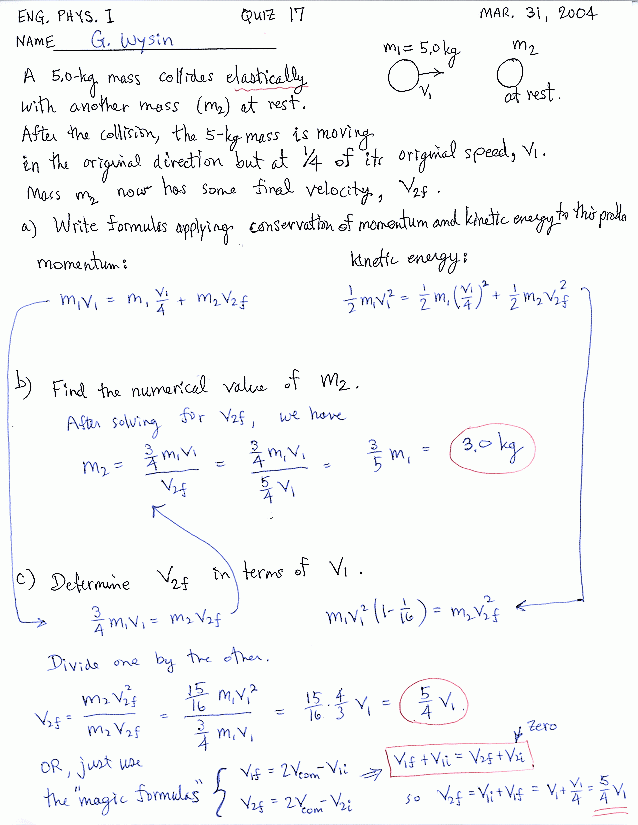 ENG. PHYS. I QUIZ 17 MAR. 31, 2004
NAME G. Wysin
m₁ = 5.0 kg m₂
V₁ at rest.
A 5.0-kg mass collides elastically
with another mass (m₂) at rest.
After the collision, the 5-kg mass is moving
in the original direction but at 1/4 of its original speed, V₁.
Mass m₂ now has some final velocity, V₂f.
a) Write formulas applying conservation of momentum and kinetic energy to this problem
momentum: kinetic energy:
m₁V₁ = m₁ V₁/4 + m₂V₂f ½m₁V₁² = ½m₁(V₁/4)² + ½m₂V₂f²
b) Find the numerical value of m₂.
After solving for V₂f, we have
m₂ = (3/4 m₁V₁)/V₂f = (3/4 m₁V₁)/(5/4 V₁) = 3/5 m₁ = 3.0 kg
c) Determine V₂f in terms of V₁.
3/4 m₁V₁ = m₂V₂f m₁V₁²(1 - 1/16) = m₂V₂f²
Divide one by the other.
V₂f = (m₂V₂f²)/(m₂V₂f) = (15/16 m₁V₁²)/(3/4 m₁V₁) = 15/16 · 4/3 V₁ = 5/4 V₁.
zero
OR, just use V₁f = 2Vcom - V₁i ⇒ V₁f + V₁i = V₂f + V₂i
the "magic formulas" V₂f = 2Vcom - V₂i so V₂f = V₁i + V₁f = V₁ + V₁/4 = 5/4 V₁